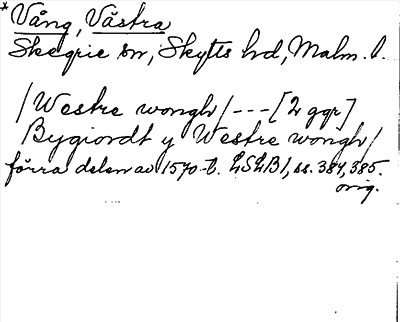 * Vång, Västra
Skegrie sn, Skytts hd, Malm. l.
/Westre wongh/ --- [2 ggr]
Bygiordt y Westre wongh/
förra delen av 1570-t. LSLB1, ss. 384, 385.
orig.